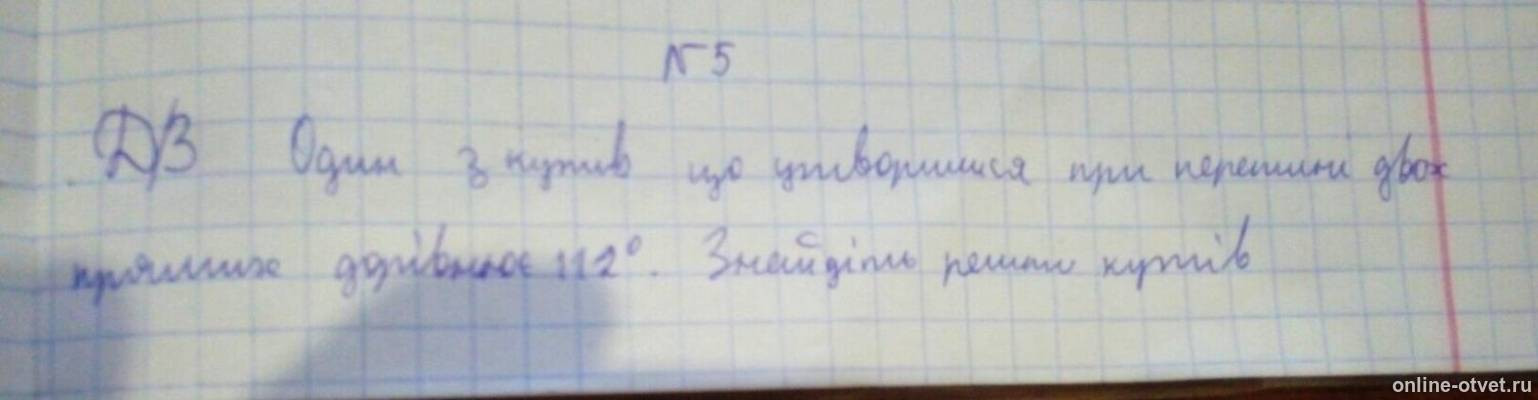 №5
ДЗ Один з кутів що утворилися при перетині двох
прямих дорівнює 112°. Знайдіть решту кутів
online-otvet.ru